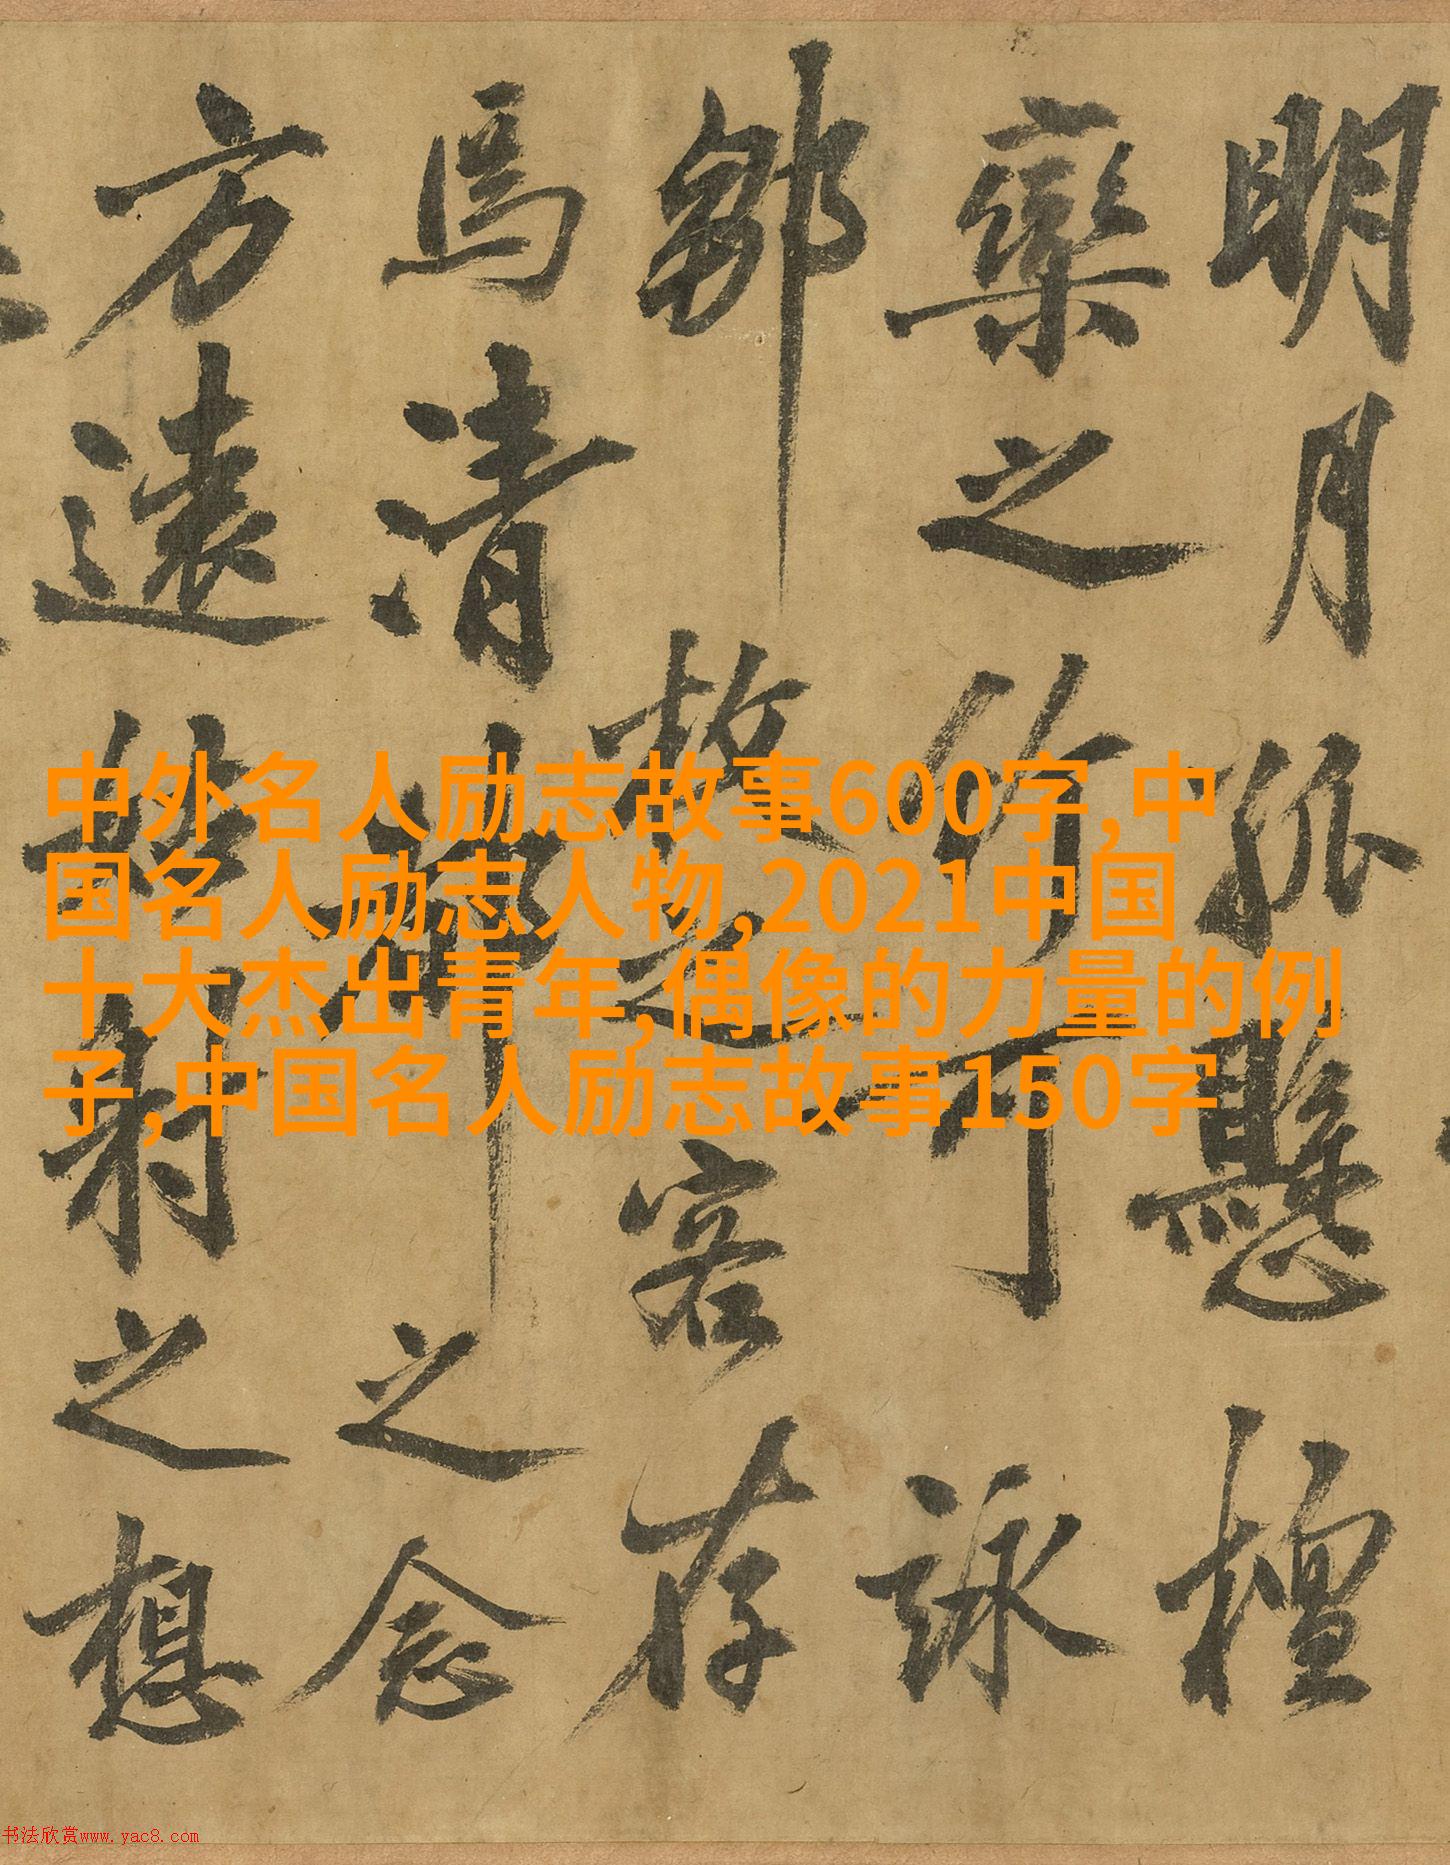 明月孤懸檀
欒之竹可詠
鄒枚之客存
馬清之念
方遠姑射之想
中外名人励志故事600字,中
国名人励志人物,2021中国
十大杰出青年,偶像的力量的例
子,中国名人励志故事150字
书法欣赏www.yac8.com